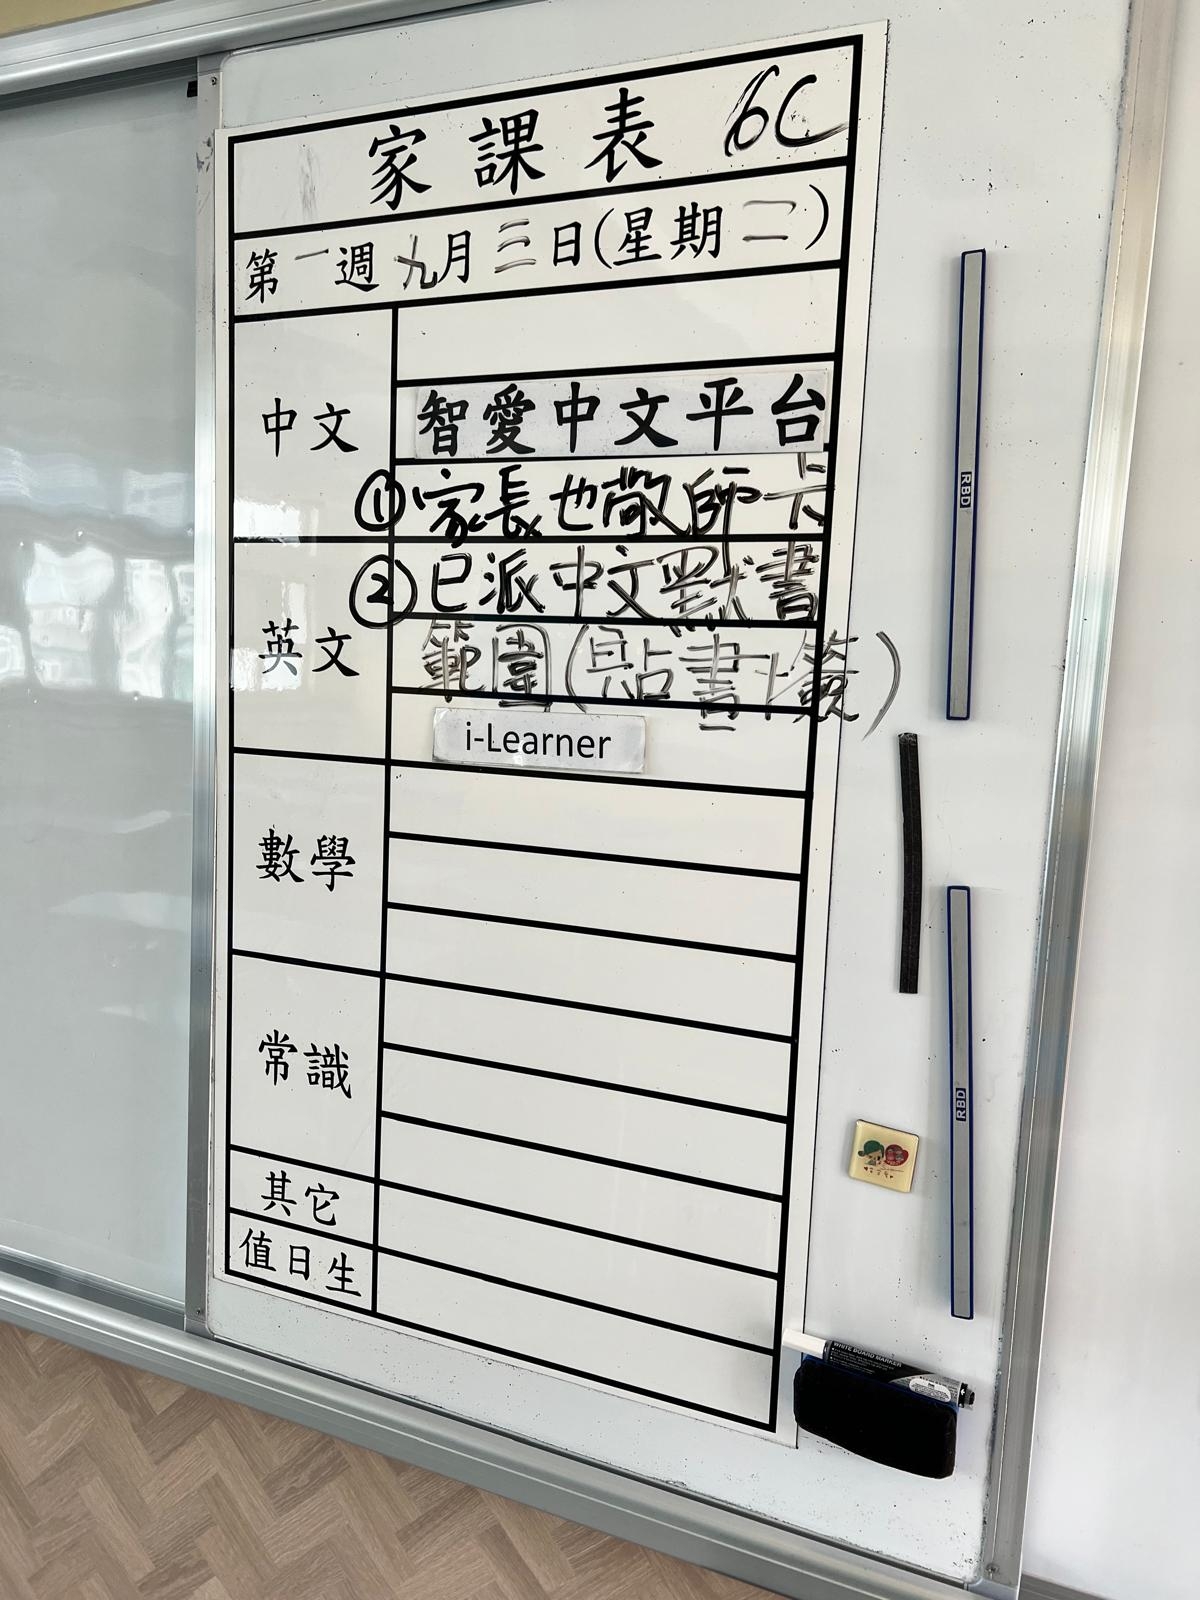 家課表 6C
第一週九月三日(星期二)
中文
智愛中文平台
① 家長也敬師卡
② 已派中文默書
英文
範圍(貼書檢)
i-Learner
數學
常識
其它
值日生
RBD
RBD
WHITE BOARD MARKER